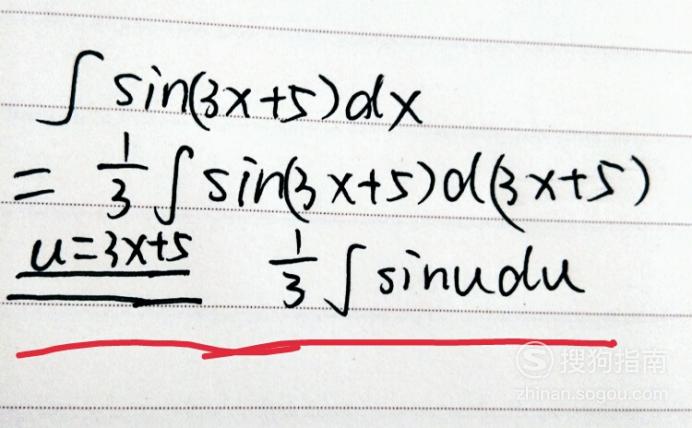 ∫ sin(3x+5)dx
= 1/3 ∫ sin(3x+5)d(3x+5)
u=3x+5 1/3 ∫ sinudu
搜狗指南
zhinan.sogou.com